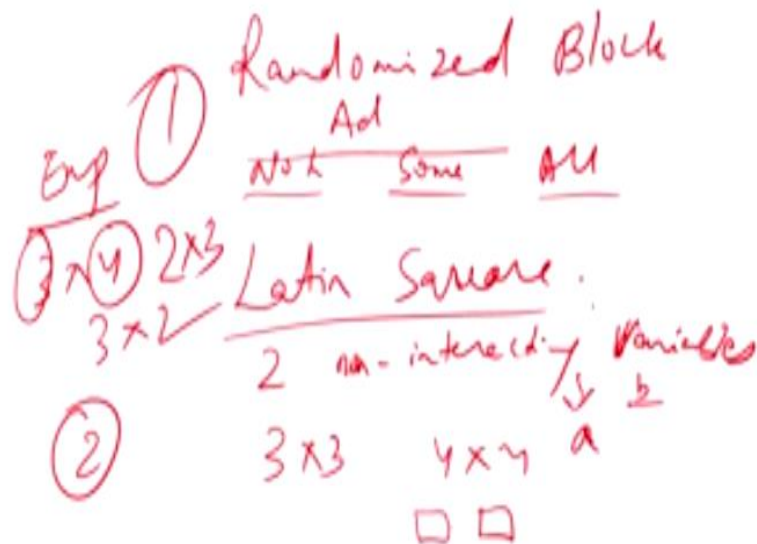 1 Randomized Block
Ad
Exp Non Some All
3 × 4 2×3 Latin Square.
3 × 2
2 non-interacting Variables
a b
2 3×3 4×4